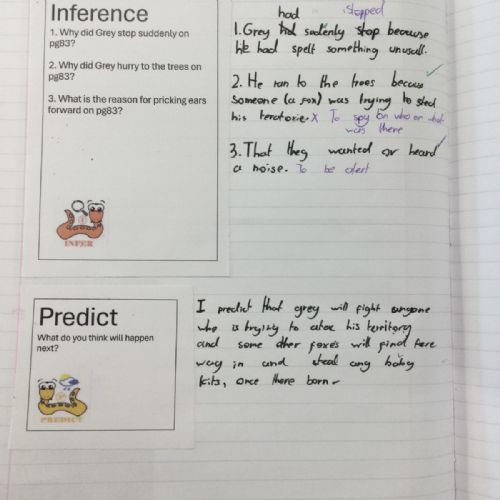 Inference
1. Why did Grey stop suddenly on
pg83?
2. Why did Grey hurry to the trees on
pg83?
3. What is the reason for pricking ears
forward on pg83?
INFER
had stopped
1. Grey had sudenly stop because
He had spelt something unusall.
2. He ran to the trees becaus
someone (a fox) was trying to steal
his terotorie. X To spy on who or what
was there
3. That they wanted or heard
a noise. To be alert
Predict
What do you think will happen
next?
PREDICT
I predict that grey will fight anyone
who is trying to his territory
and some other foxes will find there
way in and steal any baby
kits, once there born.